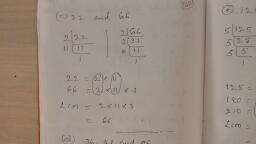 (c) 22 and 66
2 22
11 11
1
2 66
3 33
11 11
1
22 = 2 × 11
66 = 2 × 11 × 3
Lcm = 2×11×3
= 66
5 12.5
5 25
5 5
1
12.5 =
180 =
210 =
Lcm =